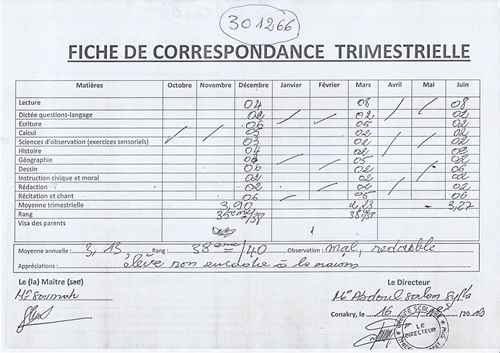 301266
FICHE DE CORRESPONDANCE TRIMESTRIELLE
Matières Octobre Novembre Décembre Janvier Février Mars Avril Mai Juin
Lecture 04 08 08
Dictée questions-langage 02 02 02
Ecriture 06 05 02
Calcul 03 02 02
Sciences d'observation (exercices sensoriels) 03 02 02
Histoire 04 02 02
Géographie 05 02
Dessin 06 02 06
Instruction civique et moral 02 02 02
Rédaction 02 02 02
Récitation et chant 06 05 06
Moyenne trimestrielle 3,90 3,27
Rang 35ème/38 38/38
Visa des parents
Moyenne annuelle : 3,13 Rang : 38ème/40 Observation : mal, redouble
Appréciations : élève non encadré à la maison
Le (la) Maitre (sse) Le Directeur
Me Soumah Me Abdoul Salam Sylla
Conakry, le 16
LE DIRECTEUR